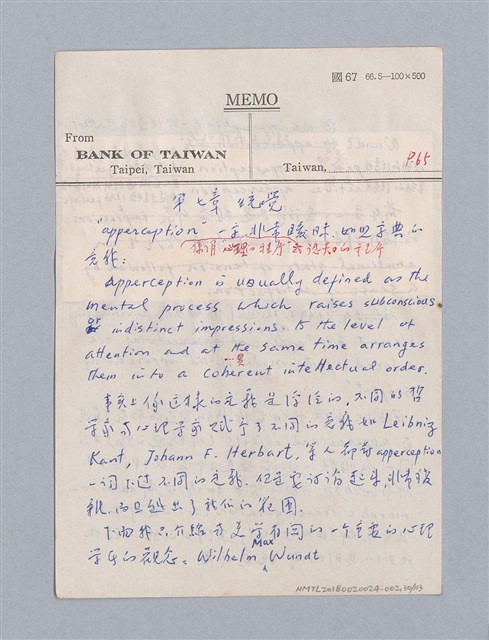 國 67 66.5—100×500
MEMO
From
BANK OF TAIWAN
Taipei, Taiwan
Taiwan,
P.65
第七章 統覺
"apperception" 一字非常曖昧,如照字典的
定義:
Apperception is usually defined as the
mental process which raises subconscious
or indistinct impressions to the level of
attention and at the same time arranges
them into a coherent intellectual order.
事實上像這樣的定義是浮泛的,不同的哲
學家與心理學家賦予了不同的定義如 Leibniz
Kant, Johann F. Herbart, 等人都對 apperception
一詞下過不同的定義。但是要討論起來,非常複
雜,而且超出了我們的範圍。
下面我只介紹與美學有關的一個重要的心理
學家的觀念。Wilhelm Max Wundt
HMTL20180020024-002,